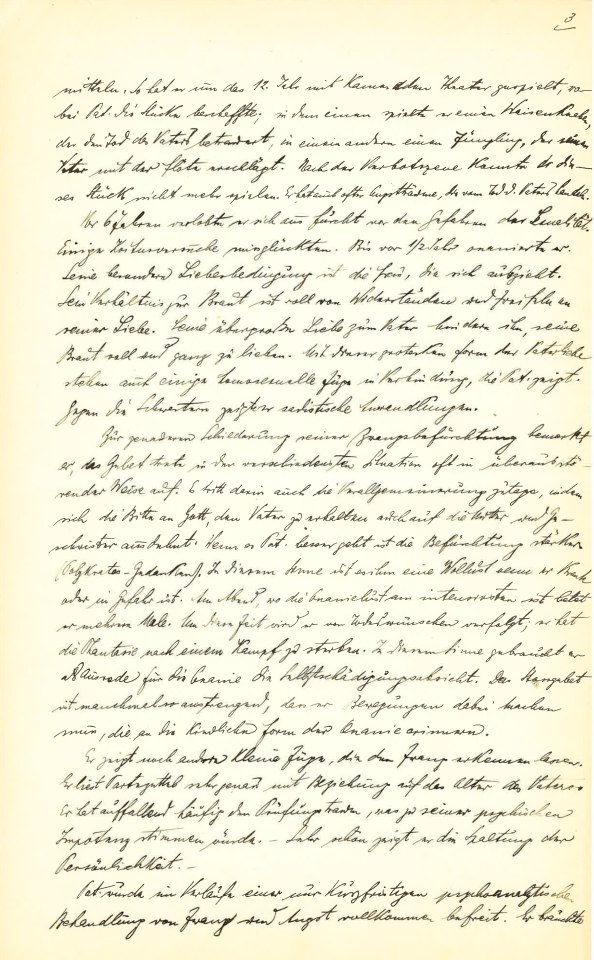 3
mitteln. So hat er um das 12. Jahr mit Kameraden Theater gespielt, wo-
bei Pat. die Stücke beschaffte; in dem einen spielte er einen Waisenknaben,
der den Tod des Vaters betrauert, in einem andern einen Jüngling, der seinen
Vater mit der Flöte erschlägt. Nach der Verbotszene konnte er die-
ses Stück nicht mehr spielen. Er hat auch öfter Angstträume, die vom Tod d. Vaters handeln.
Vor 6 Jahren verlobte er sich aus Furcht vor den Gefahren der
Einige Koitusversuche missglückten. Bis vor 1/2 Jahr onanierte er.
Seine besondere Liebesbedingung ist die Frau, die sich auszieht.
Sein Verhältnis zur Braut ist voll von Widerständen und Zweifeln an
seiner Liebe. Seine übergroße Liebe zum Vater hindere ihn, seine
Braut voll und ganz zu lieben. Mit dieser grotesken Form der Vaterliebe
stehen auch einige homosexuelle Züge in Verbindung, die Pat. zeigt.
Gegen die Schwestern zeigt er sadistische Anwandlungen.
Zur genaueren Schilderung seiner Zwangsbefürchtung bemerkt
er, das Gebet trete in den verschiedensten Situation oft in überaus stö-
render Weise auf. Es tritt darin auch die Verallgemeinerung zutage, indem
sich die Bitte an Gott, den Vater zu erhalten auch auf die Mutter und Ge-
schwister ausdehnt. Wenn es Pat. besser geht ist die Befürchtung stärker
(Polykrates-Gedanken). In diesem Sinne ist es ihm eine Wollust wenn er krank
oder in Gefahr ist. Am Abend, wo die Onanielust am intensivsten ist betet
er mehrere Male. Um diese Zeit wird er von Todeswünschen verfolgt; er hat
die Phantasie nach einem Kampf zu sterben. In diesem Sinne gebraucht er
als Ausrede für die Onanie die Selbstschädigungsabsicht. Das
ist manchmal so anstrengend, dass er Bewegungen dabei machen
muss, die an die kindliche Form der Onanie erinnern.
Er zeigt noch andere kleine Züge, die den Zwang erkennen lassen.
Er liest sehr genau mit Beziehung auf das Alter des Vaters.
Er hat auffallend häufig den Prüfungstraum, was zu seiner psychischen
Impotenz stimmen würde. – Sehr schön zeigt er die Spaltung der
Persönlichkeit. –
Pat. wurde im Verlaufe einer nur kurzfristigen psychoanalytischen
Behandlung von Zwang und Angst vollkommen befreit. Er brauchte